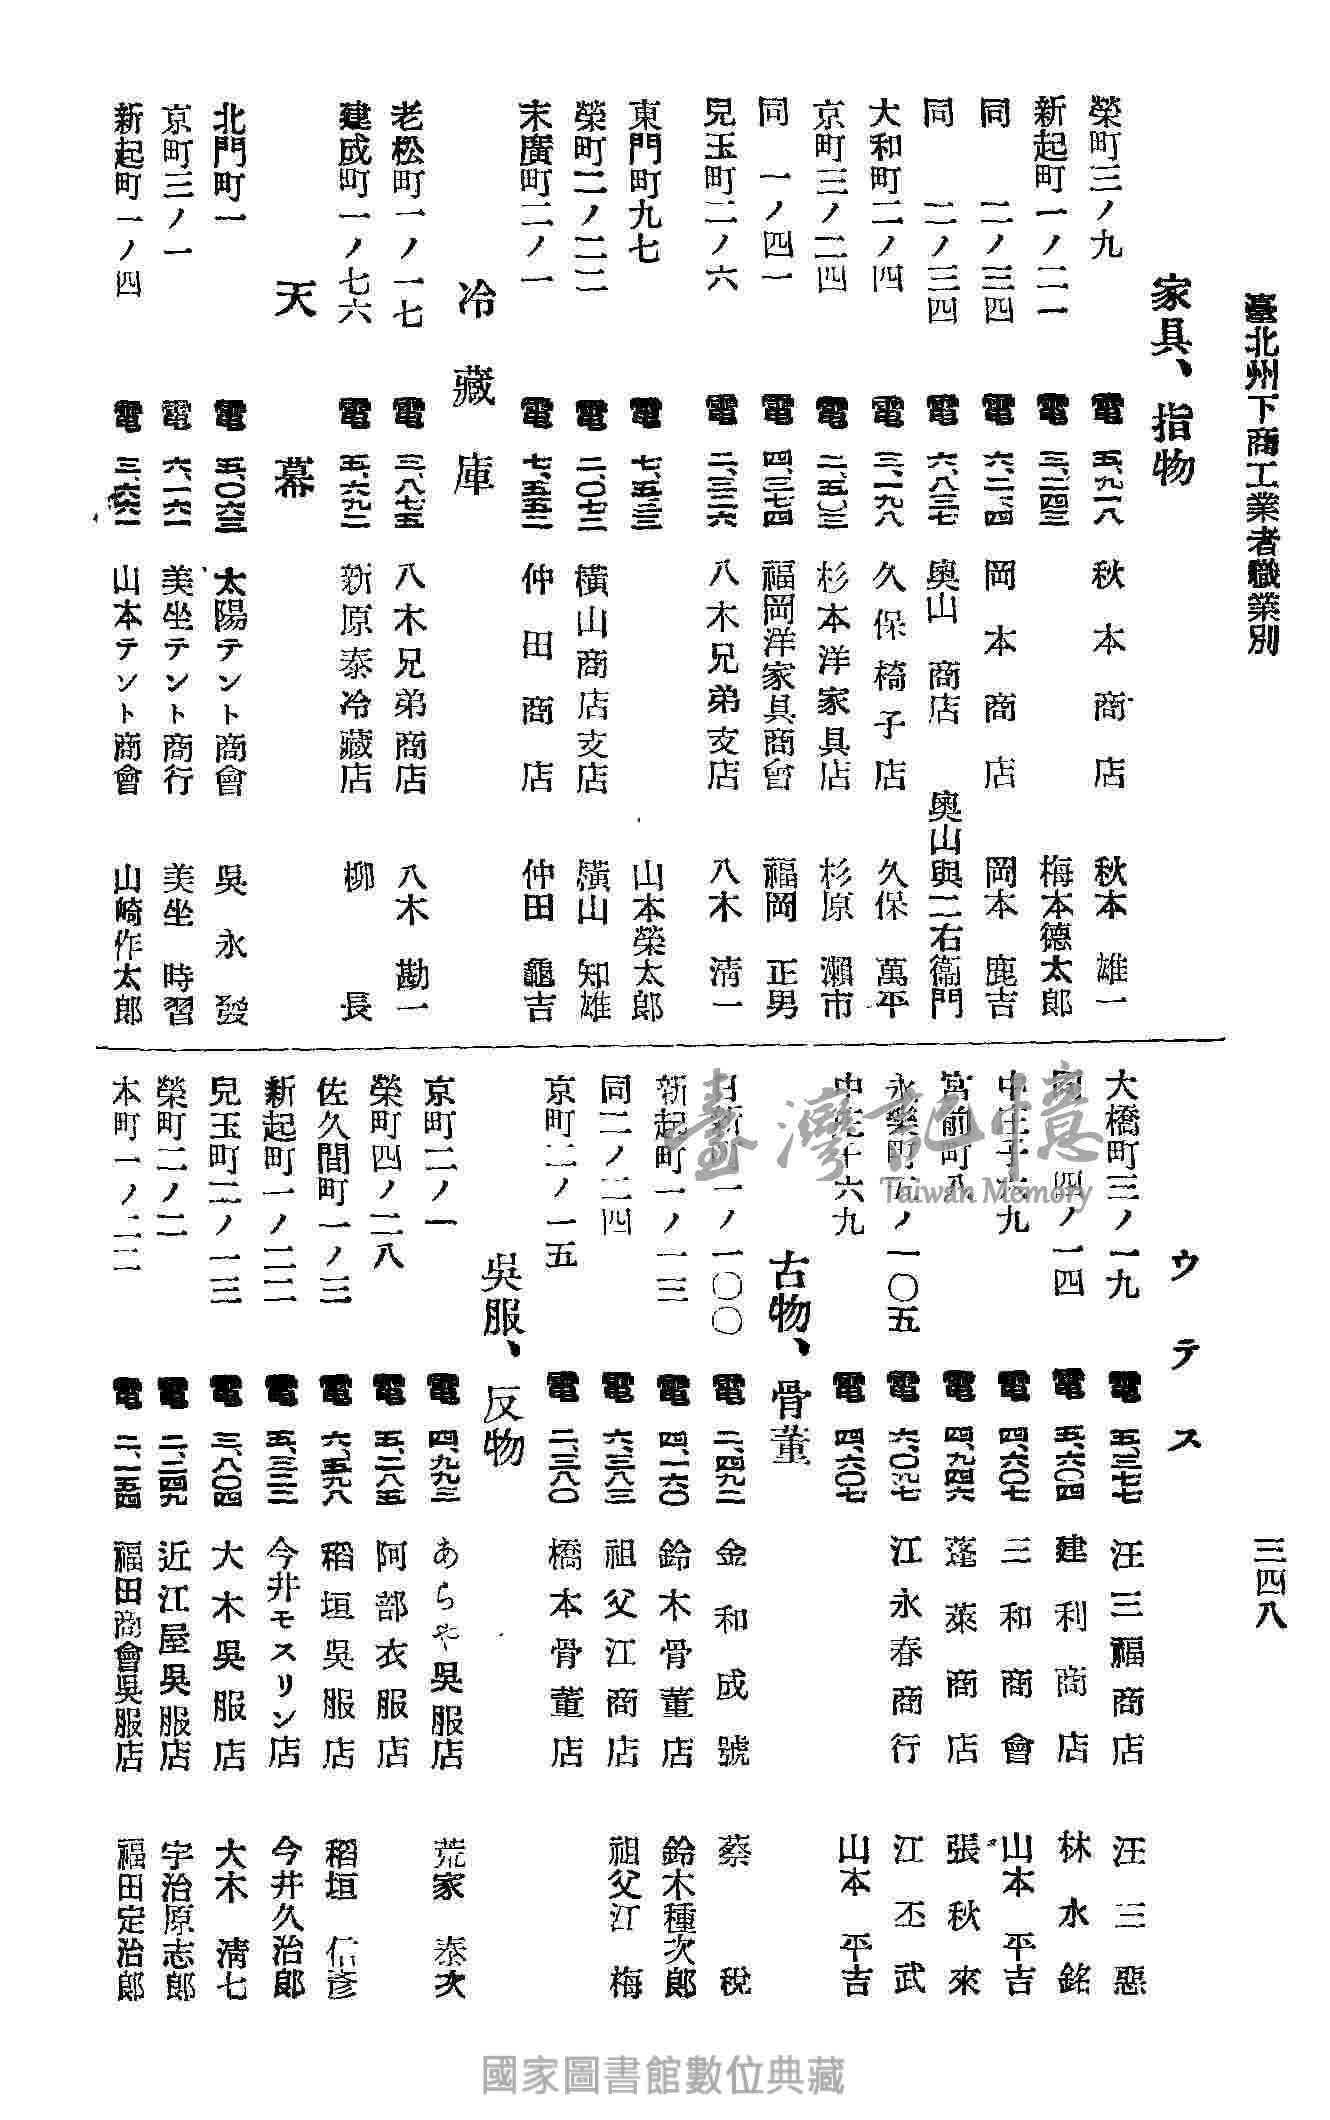 臺北州下商工業者職業別
三四八
家具、指物
榮町三ノ九 電 五、九一八 秋本商店 秋本雄一
新起町一ノ二一 電 三、二四三 梅本德太郎
同 二ノ三四 電 六、二一四 岡本商店 岡本鹿吉
同 二ノ三四 電 六、八三七 奧山商店 奧山與二右衞門
大和町二ノ四 電 三、一九八 久保椅子店 久保萬平
京町三ノ二四 電 二、五〇三 杉本洋家具店 杉原瀨市
同 一ノ四一 電 四、三七四 福岡洋家具商會 福岡正男
兒玉町二ノ六 電 二、三二六 八木兄弟支店 八木淸一
東門町九七 電 七、五三三 山本榮太郎
榮町二ノ二二 電 二、〇七三 橫山商店支店 橫山知雄
末廣町二ノ一 電 七、五五二 仲田商店 仲田龜吉
冷藏庫
老松町一ノ一七 電 三、八七五 八木兄弟商店 八木勘一
建成町一ノ七六 電 五、六九二 新原泰冷藏店 柳長
天幕
北門町一 電 五、〇六三 太陽テント商會 吳永發
京町三ノ一 電 六、一六一 美坐テント商行 美坐時習
新起町一ノ四 電 三、六六一 山本テント商會 山崎作太郎
ウテス
大橋町三ノ一九 電 五、三七七 汪三福商店 汪三惡
同 四ノ一四 電 五、六〇四 建利商店 林水銘
中庄子六九 電 四、六〇七 三和商會 山本平吉
宮前町八 電 四、九四六 蓬萊商店 張秋來
永樂町五ノ一〇五 電 六、〇九七 江永春商行 江丕武
中庄子六九 電 四、六〇七 山本平吉
古物、骨董
日新町一ノ一〇〇 電 二、四九二 金和成號 蔡稅
新起町一ノ一三 電 四、一六〇 鈴木骨董店 鈴木種次郎
同二ノ二四 電 六、三八三 祖父江商店 祖父江梅
京町二ノ一五 電 二、三八〇 橋本骨董店
吳服、反物
京町二ノ一 電 四、九九三 あらや吳服店 荒家泰次
榮町四ノ二八 電 五、二八五 阿部衣服店
佐久間町一ノ三 電 六、五九八 稻垣吳服店 稻垣信彥
新起町一ノ二二 電 五、三二二 今井モスリン店 今井久治郎
兒玉町二ノ一三 電 三、八〇四 大木吳服店 大木淸七
榮町二ノ二 電 二、二四九 近江屋吳服店 宇治原志郎
本町一ノ二二 電 二、一五四 福田商會吳服店 福田定治郎
臺灣記憶
Taiwan Memory
國家圖書館數位典藏